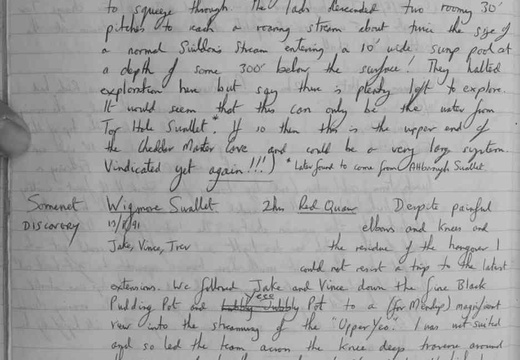 to squeeze through the lads descended two roomy 30'
pitches to reach a roaring stream about twice the size of
a normal Swildons stream entering a 10' wide sump pool at
a depth of some 300' below the surface! They halted
exploration here but say there is plenty left to explore.
It would seem that this can only be the water from
Tor Hole Swallet*. If so then this is the upper end of
the Cheddar Master Cave and could be a very large system.
Vindicated yet again!!!) *Later found to come from Attborough Swallet
Somerset Wigmore Swallet 2hrs Red Quar Despite painful
DISCOVERY 13/8/91 elbows and knees and
Jake, Vince, Trev the residue of the hangover I
could not resist a trip to the latest
extensions. We followed Jake and Vince down the fine Black
Pudding Pot and Yeo Pot to a (for Mendip) magnificent
view into the streamway of the "Upper Yeo". I was not suited
and so led the team across the knee deep traverse around